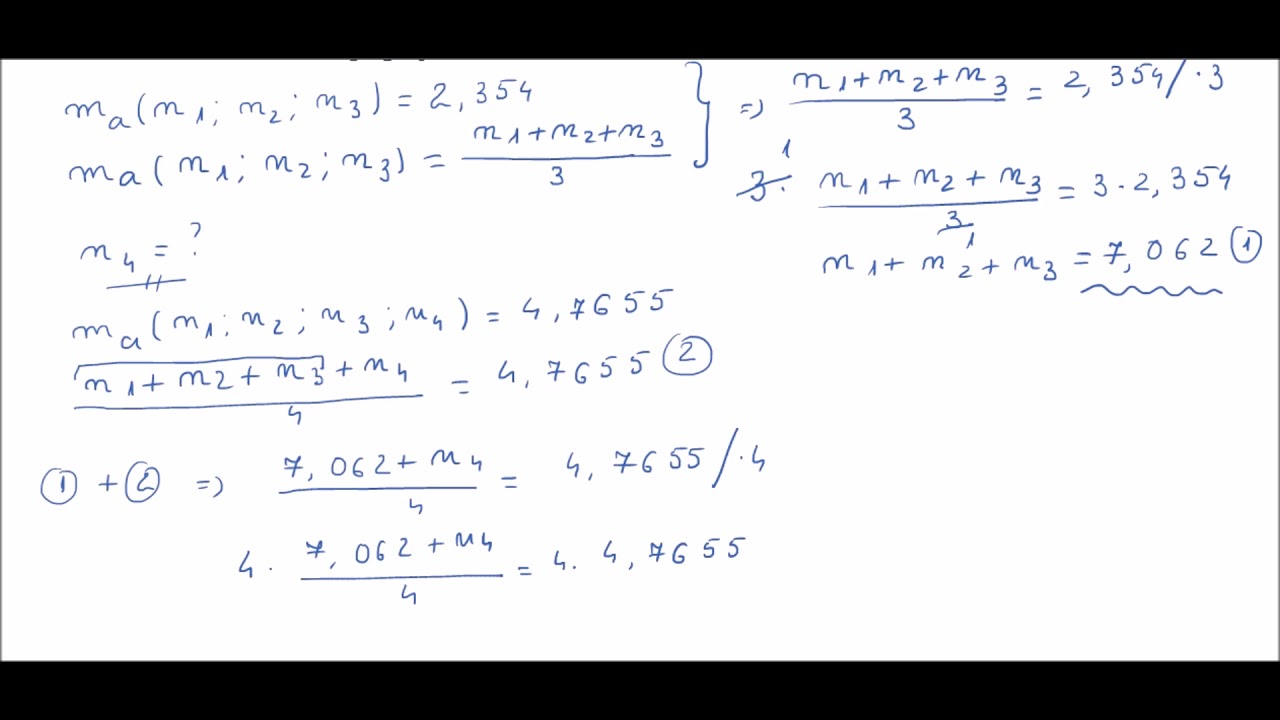 m_a(n_1; n_2; n_3) = 2,354
m_a(n_1; n_2; n_3) = \frac{n_1+n_2+n_3}{3}
n_4 = ?
m_a(n_1; n_2; n_3; n_4) = 4,7655
\frac{n_1+n_2+n_3+n_4}{4} = 4,7655 ②
① + ② => \frac{7,062+n_4}{4} = 4,7655 / ·4
4 · \frac{7,062+n_4}{4} = 4 . 4,7655
=> \frac{n_1+n_2+n_3}{3} = 2,354 / ·3
3 · \frac{n_1+n_2+n_3}{3} = 3 · 2,354
1
1
n_1+n_2+n_3 = 7,062 ①